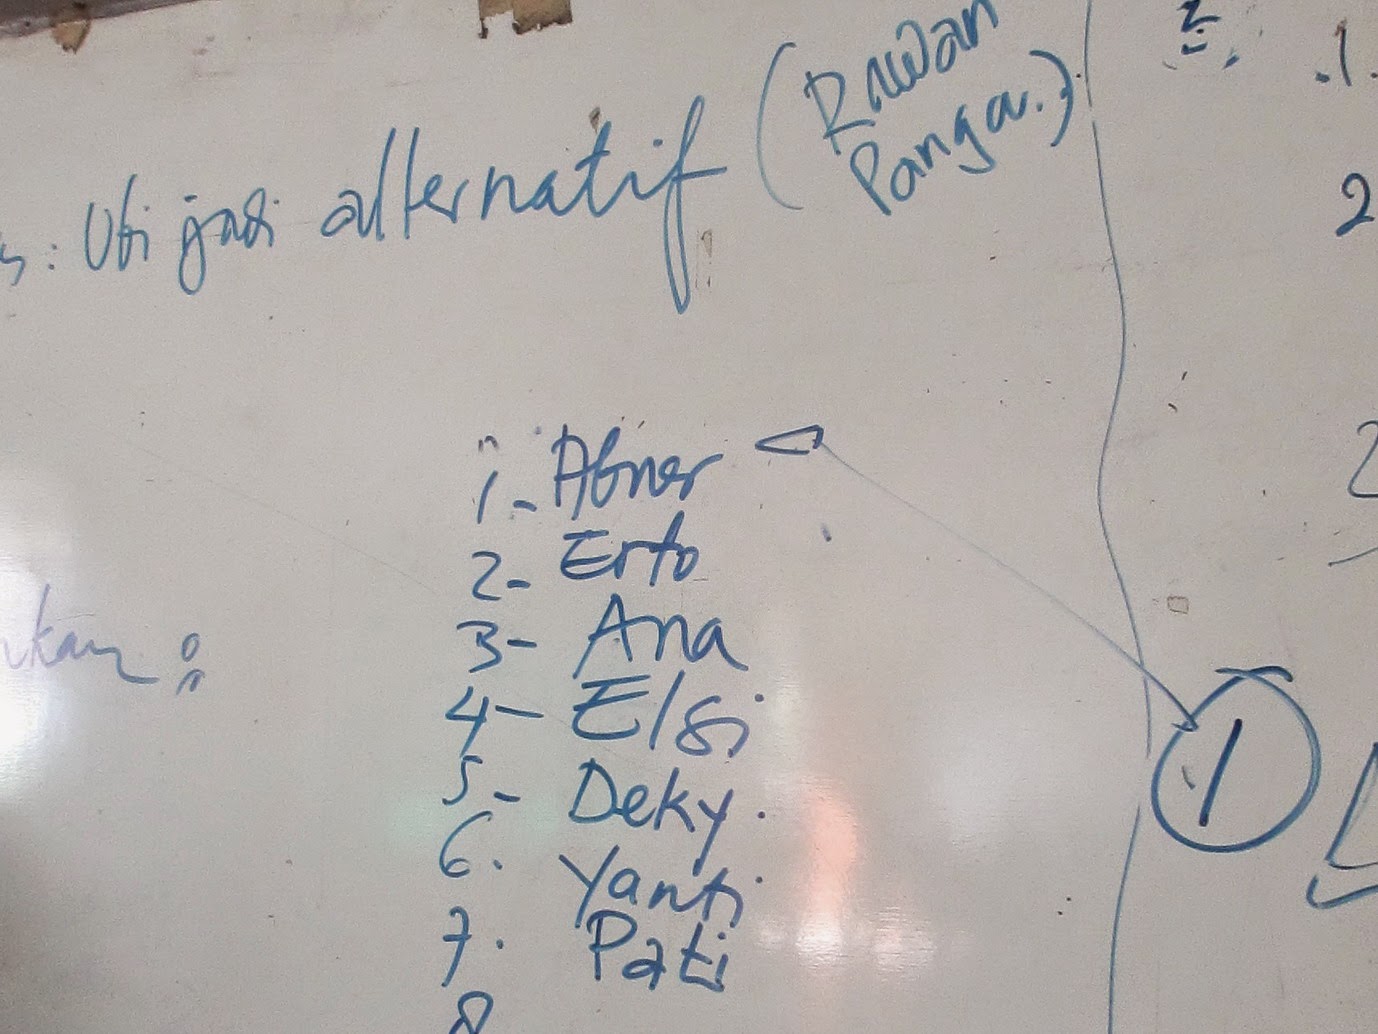 : Ubi jadi alternatif (Rawan
Pangan.)
1- Abner
2- Erto
3- Ana
4- Elsi
5- Deky.
6. Yanti
7. Pati
8
1
2
.1.
2